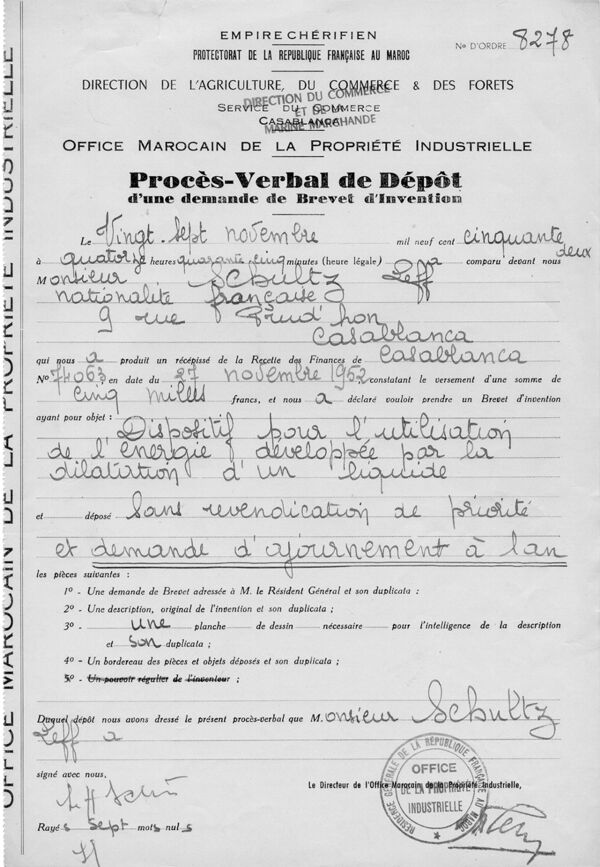 OFFICE MAROCAIN DE LA PROPRIÉTÉ INDUSTRIELLE
EMPIRE CHÉRIFIEN
PROTECTORAT DE LA REPUBLIQUE FRANÇAISE AU MAROC
No D'ORDRE 8278
DIRECTION DE L'AGRICULTURE, DU COMMERCE & DES FORETS
DIRECTION DU COMMERCE
SERVICE DU COMMERCE
ET DE LA
CASABLANCA
MARINE MARCHANDE
OFFICE MAROCAIN DE LA PROPRIÉTÉ INDUSTRIELLE
Procès-Verbal de Dépôt
d'une demande de Brevet d'Invention
Le Vingt. Sept novembre mil neuf cent cinquante deux
à quatorze heures quarante cinq minutes (heure légale) a comparu devant nous
Monsieur Schultz Leff
nationalité française
9 rue Prud'hon
Casablanca
qui nous a produit un récépissé de la Recette des Finances de Casablanca
No 74063 en date du 27 novembre 1952 constatant le versement d'une somme de
cinq milles francs, et nous a déclaré vouloir prendre un Brevet d'invention
ayant pour objet : Dispositif pour l'utilisation
de l'énergie développée par la
dilatation d'un liquide
et déposé Sans revendication de priorité
et demande d'ajournement à l'an
les pièces suivantes :
1o - Une demande de Brevet adressée à M. le Résident Général et son duplicata ;
2o - Une description, original de l'invention et son duplicata ;
3o - une planche de dessin nécessaire pour l'intelligence de la description
et son duplicata ;
4o - Un bordereau des pièces et objets déposés et son duplicata ;
5o - Un pouvoir régulier de l'inventeur ;
Duquel dépôt nous avons dressé le présent procès-verbal que Monsieur Schultz
Leff a
signé avec nous,
Le Directeur de l'Office Marocain de la Propriété Industrielle,
RÉSIDENCE GÉNÉRALE DE LA RÉPUBLIQUE FRANÇAISE AU MAROC
OFFICE
DE LA PROPRIÉTÉ
INDUSTRIELLE
Rayés sept mots nuls